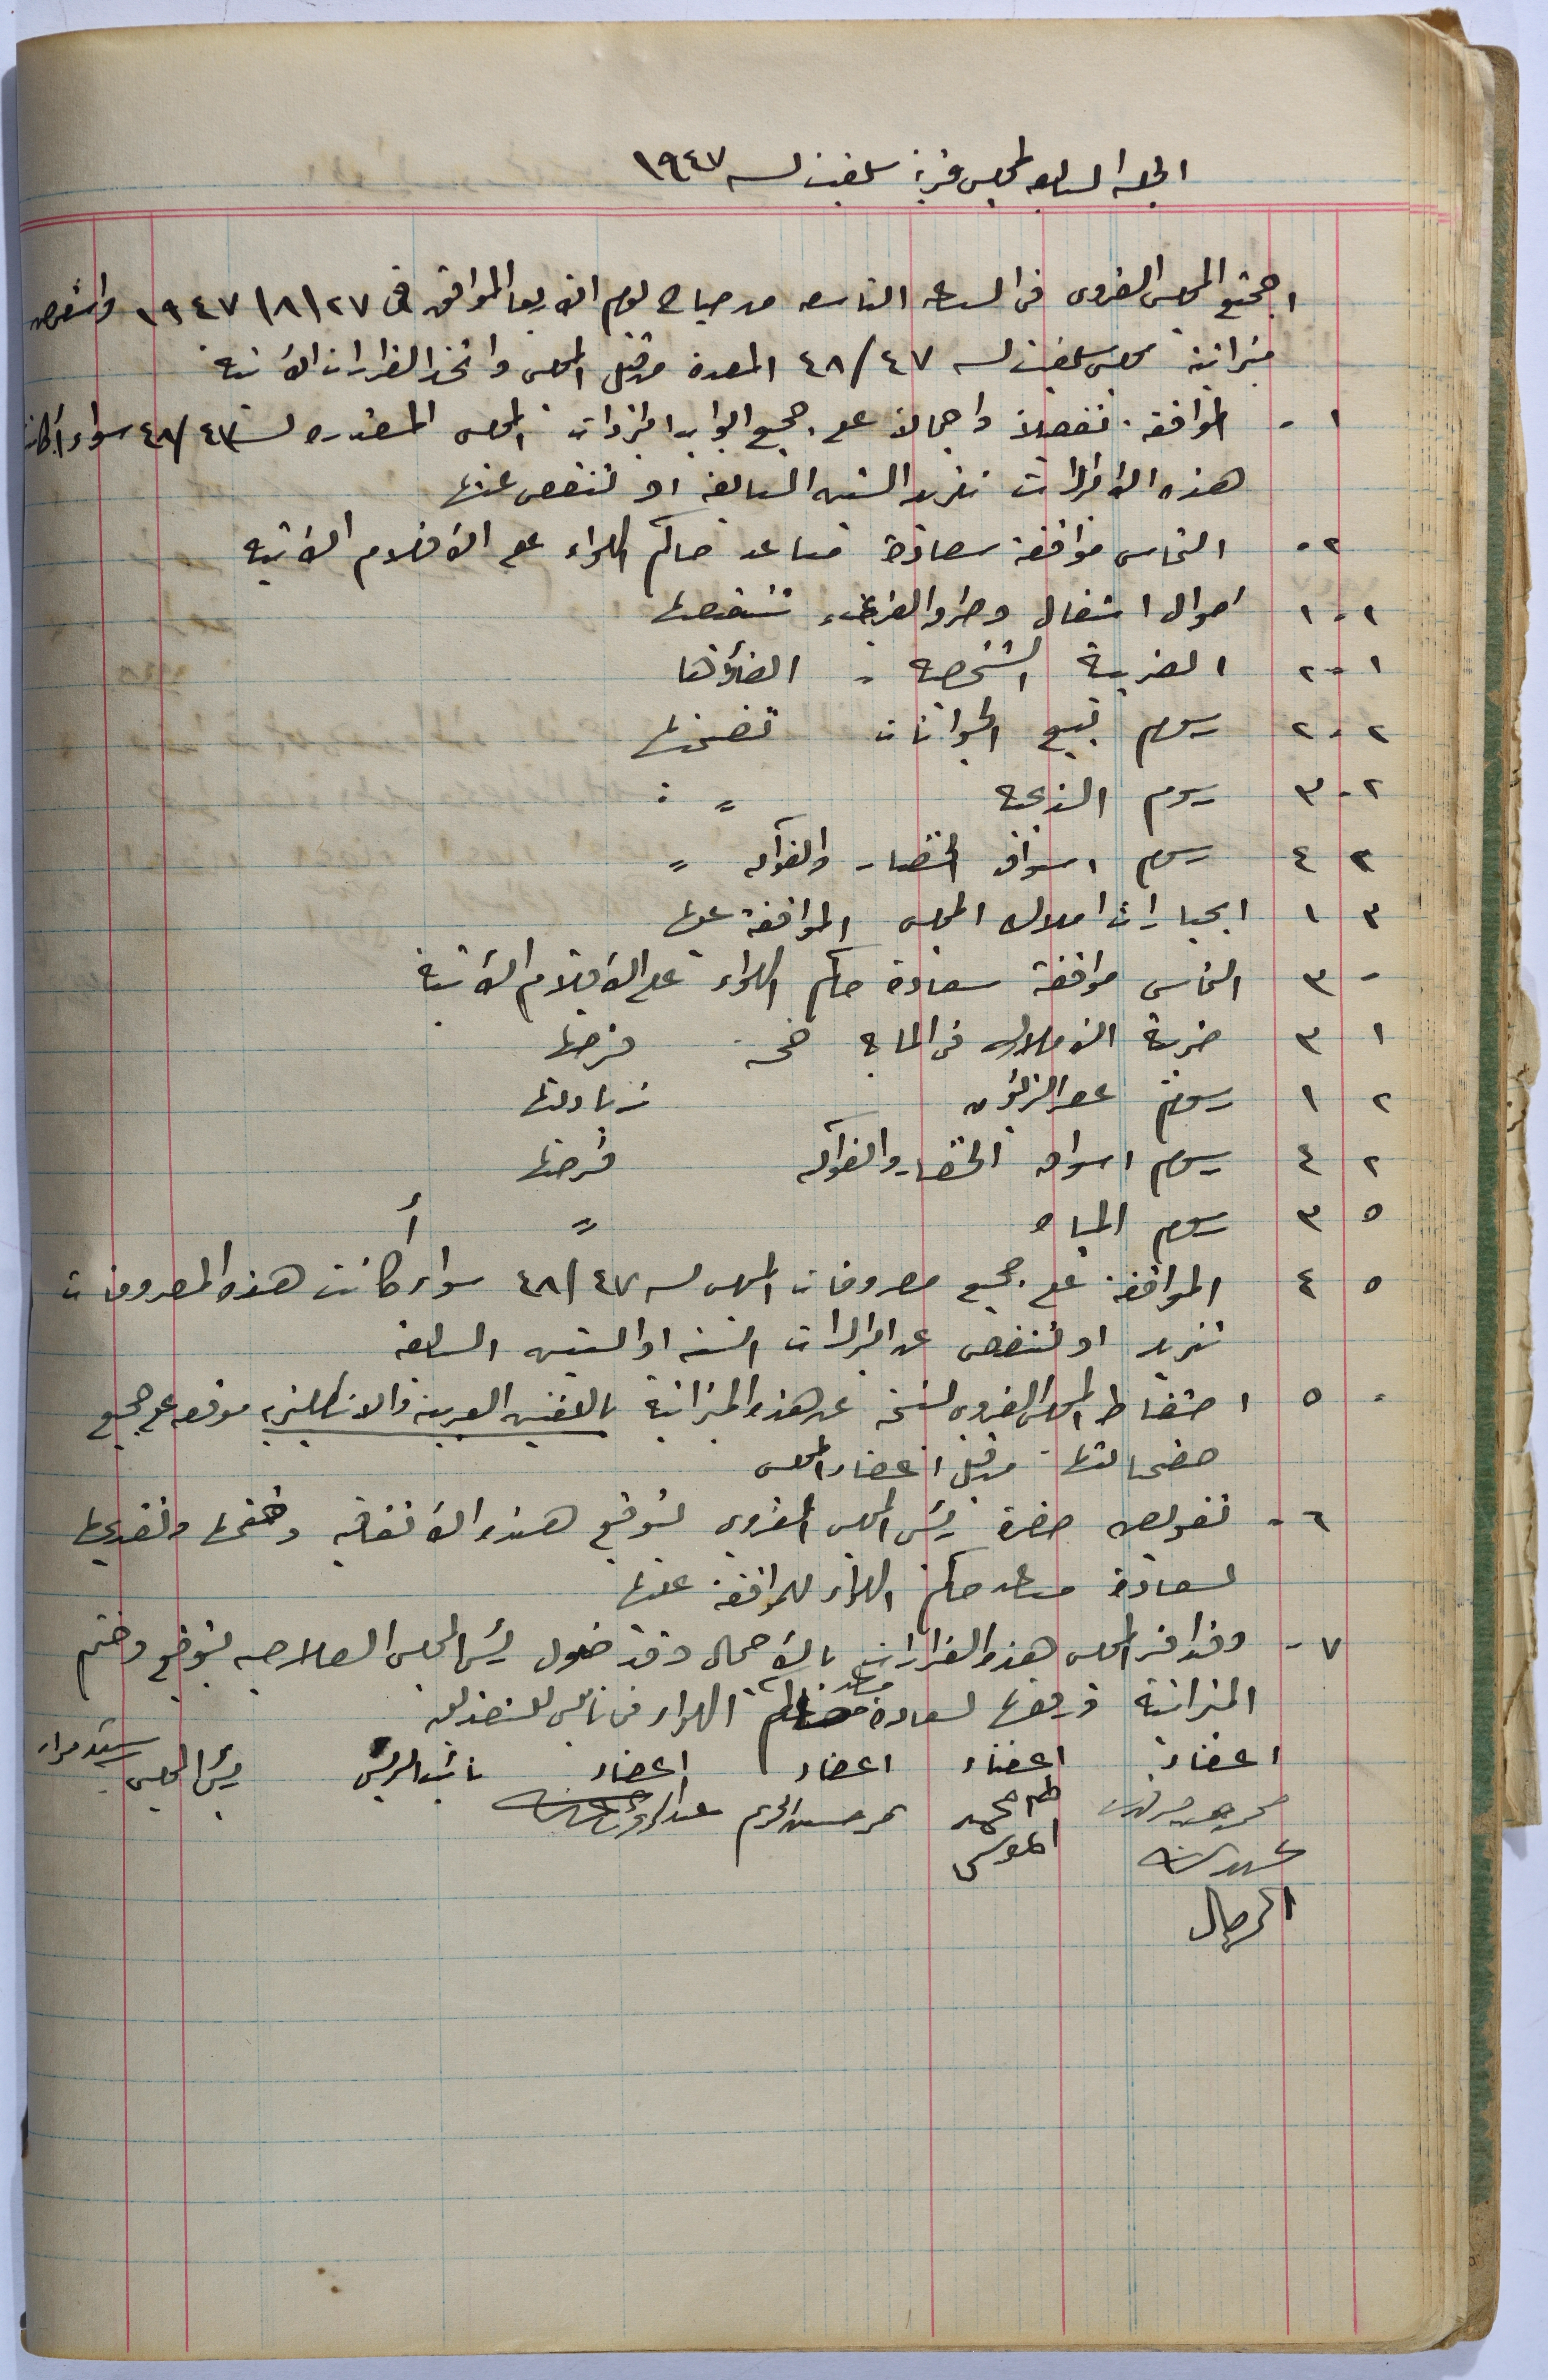 الجلسة السابعة لمجلس قرية سلفيت لسنة ١٩٤٧
اجتمع المجلس القروي في الساعة التاسعة من صباح يوم الاربعا الموافق في ٢٧/٨/١٩٤٧ واستعرض
ميزانية مجلس سلفيت لسنة ٤٧/٤٨ المعدة من قبل المجلس واتخذ القرارات الآتية
١- الموافقة تفصيلاً واجمالاً على جميع ابواب ايرادات المجلس المقدره لسنة ٤٧/٤٨ سواء أكانت
هذه الايرادات تزيد السنه السابقة او تنقص عنها
٢- التماس موافقة سعادة مساعد حاكم اللواء على الأقلام الآتيه
١-٢ اموال اشغال تنقيصها
١-٢ الضريبة الشخصية - الغاؤها
٢-٢ رسوم بيع الحيوانات تخفيضها
٢-٣ رسوم الذبحية "
٢ ٤ رسوم اسواق الخضار والفواكه "
٣ ١ ايجارات املاك المجلس الموافقة عليها
- ٣ التماس موافقة سعادة حاكم اللواء على الأقلام الآتية
١ ٣ ضريبة الأملاك في الماية فرضها
٢ ١ رسوم عصر الزيتون زيادتها
٢ ٤ رسوم اسواق الخضار والفواكه فرضها
٥ ٣ رسوم المياه " أ
٥ ٤ الموافقة على جميع مصروفات المجلس لسنة ٤٧/٤٨ سواء كانت هذه المصروفات
تزيد او تنقص عن ايرادات السنة او السنين السابقة
- ٥ احتفاظ المجلس القروي بنسخة عن هذه الميزانية باللغتين العربية والانكليزيه موقعه على جميع
صفحاتها من قبل اعضاء المجلس
٦- تفويض حضرة رئيس المجلس القروي لتوقيع هذه الاتفاقيه وختمها وتقديمها
لسعادة مساعد حاكم اللواء للموافقة عليها
٧- وقد اقر المجلس هذه القرارات بالاجمال وقد خول رئيس المجلس الصلاحيه بتوقيع وختم
الميزانية ورفعها لسعادة مساعد حاكم اللواء في نابلس للتصديق
اعضاء اعضاء اعضاء اعضاء نائب الرئيس رئيس المجلس